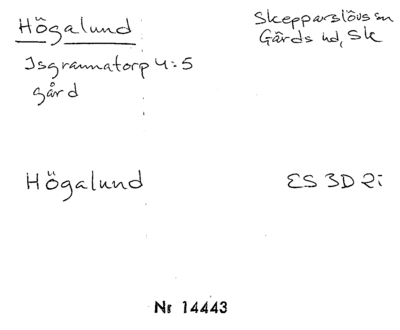 Högalund
Skepparslövs sn
Gärds hd, Sk
Isgrannatorp 4:5
gård
Högalund
ES 3D 2i
Nr 14443